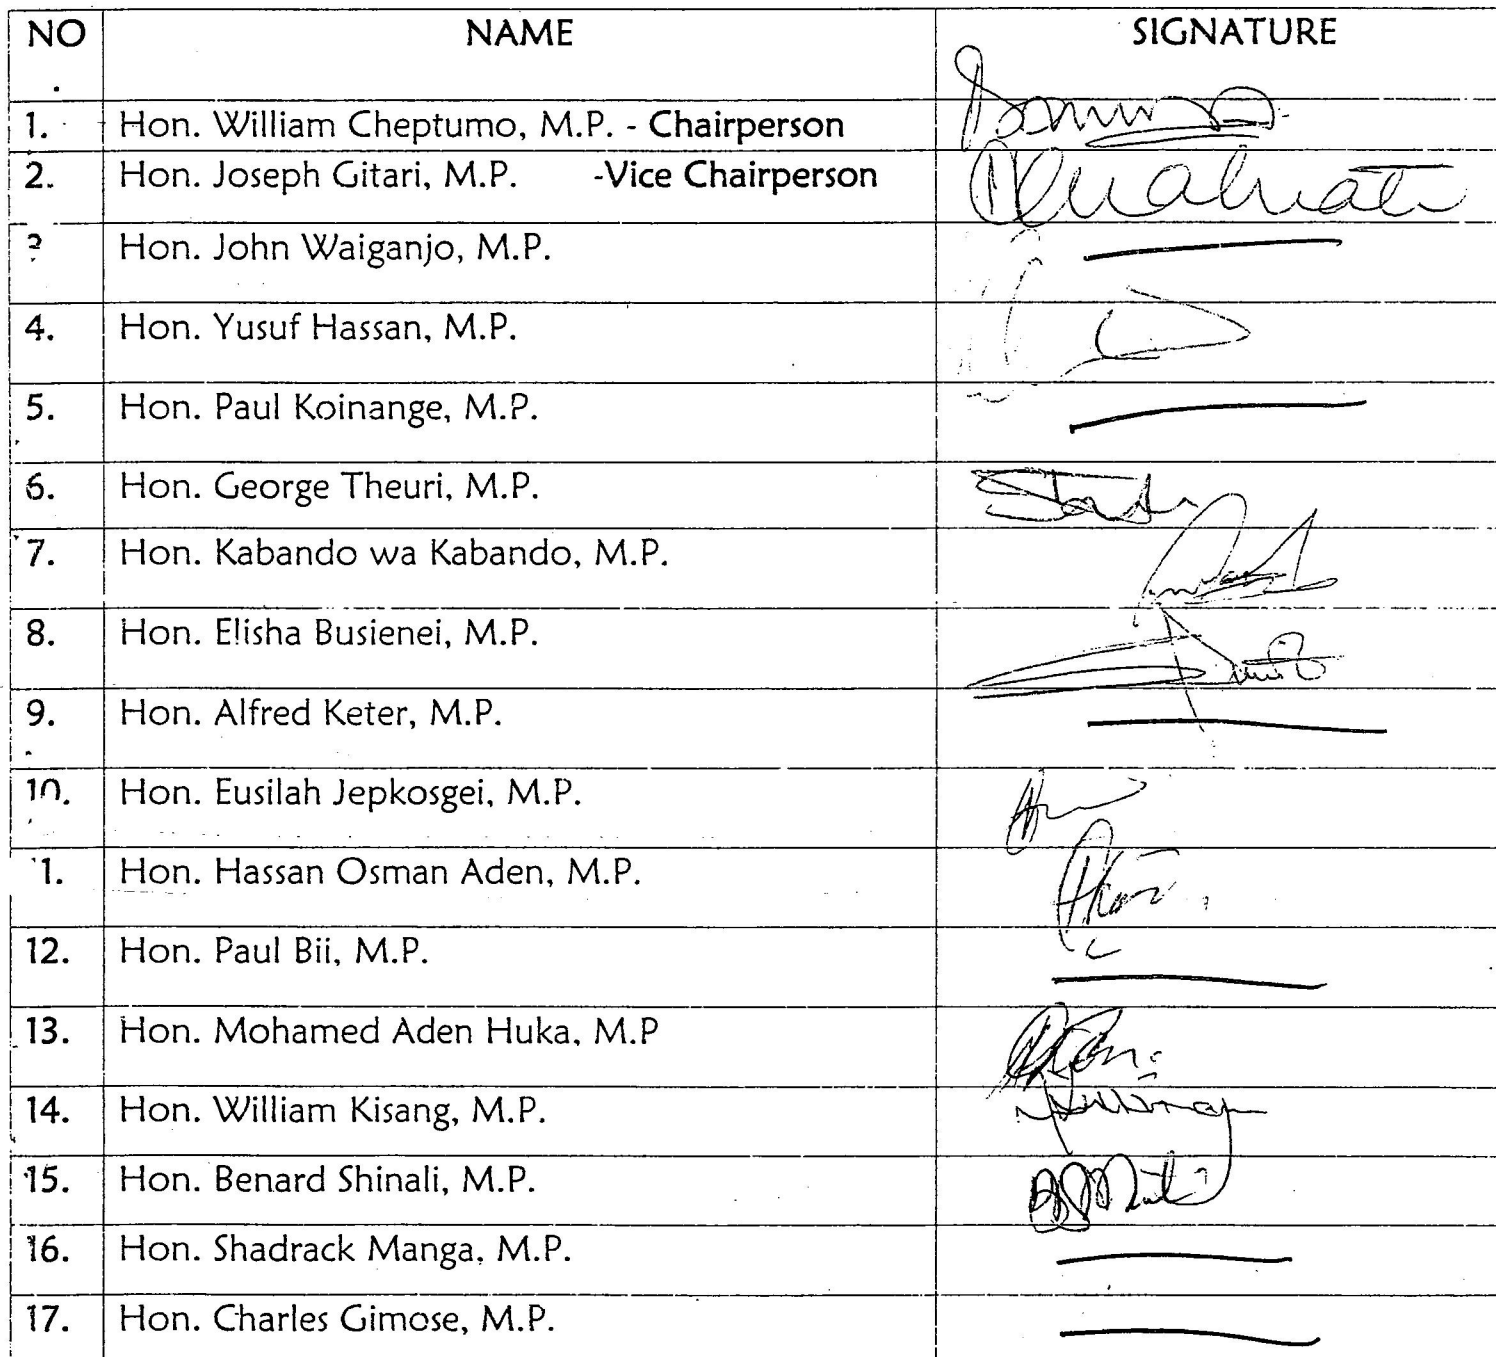 NO NAME SIGNATURE
.
1. Hon. William Cheptumo, M.P. - Chairperson
2. Hon. Joseph Gitari, M.P. -Vice Chairperson
3 Hon. John Waiganjo, M.P.
4. Hon. Yusuf Hassan, M.P.
5. Hon. Paul Koinange, M.P.
6. Hon. George Theuri, M.P.
7. Hon. Kabando wa Kabando, M.P.
8. Hon. Elisha Busienei, M.P.
9. Hon. Alfred Keter, M.P.
10. Hon. Eusilah Jepkosgei, M.P.
1. Hon. Hassan Osman Aden, M.P.
12. Hon. Paul Bii, M.P.
13. Hon. Mohamed Aden Huka, M.P
14. Hon. William Kisang, M.P.
15. Hon. Benard Shinali, M.P.
16. Hon. Shadrack Manga, M.P.
17. Hon. Charles Gimose, M.P.